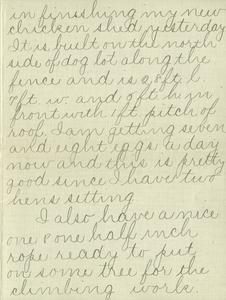 in finishing my new
chicken shed yesterday
It is built on the north
side of dog lot along the
fence and is 28 ft. l.
7 ft. w. and 9 ft. h. in
front with 1 ft. pitch of
roof. I am getting seven
and eight eggs a day
now and this is pretty
good since I have two
hens setting
I also have a nice
one & one half inch
rope ready to put
on some tree for the
climbing work.